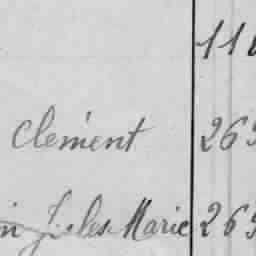 11
Clément 269
Jules Marie 269